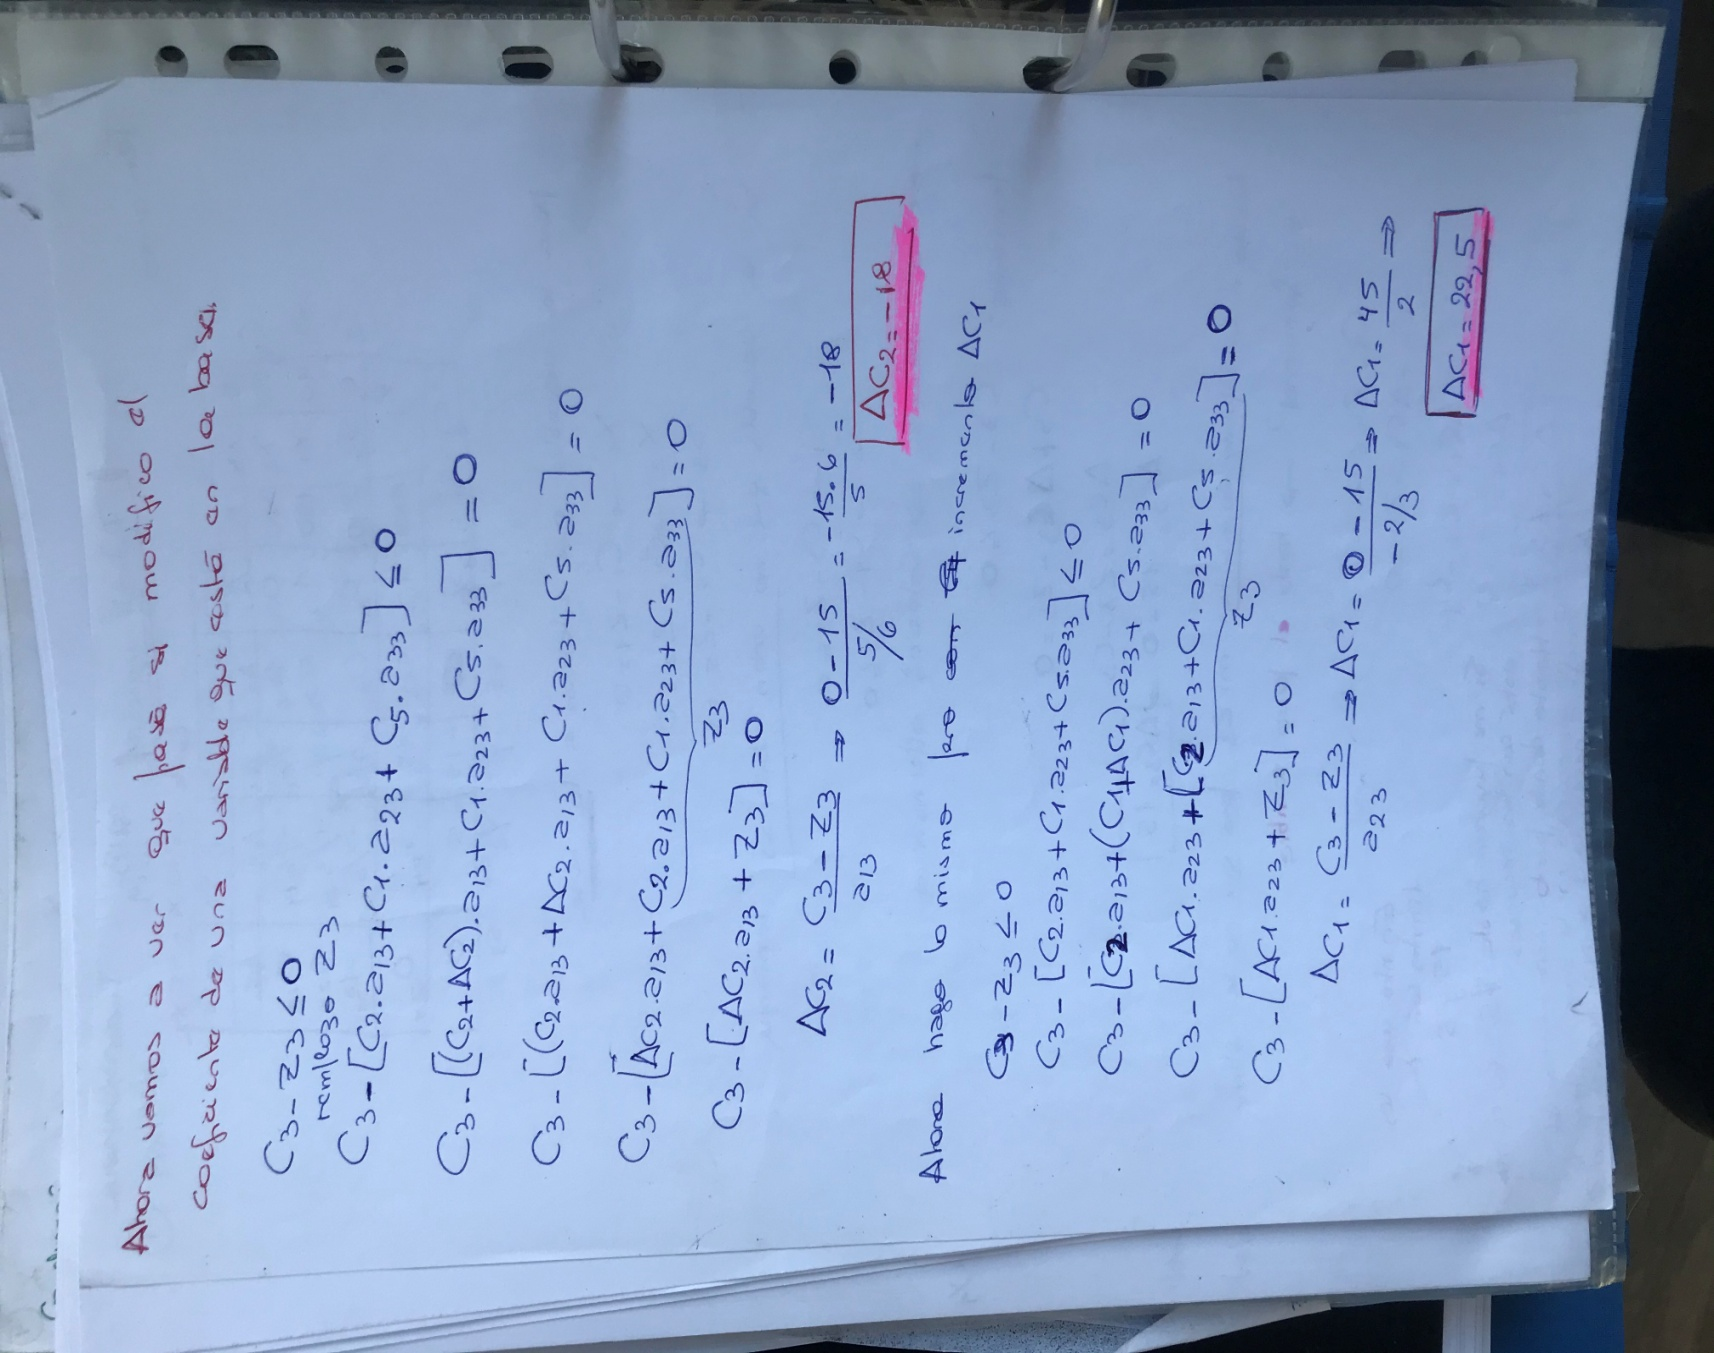 Ahora vamos a ver que pasa si modifico el
coeficiente de una variable que está en la base.
C3 - Z3 ≤ 0
remplazo Z3
C3 - [C2.a13 + C1.a23 + C5.a33] ≤ 0
C3 - [(C2+ΔC2).a13 + C1.a23 + C5.a33] = 0
C3 - [(C2.a13 + ΔC2.a13 + C1.a23 + C5.a33] = 0
C3 - [ΔC2.a13 + C2.a13 + C1.a23 + C5.a33] = 0
Z3
C3 - [ΔC2.a13 + Z3] = 0
ΔC2 = C3 - Z3 / a13 ⇒ 0 - 15 / 5/6 = -15.6 / 5 = -18
ΔC2 = -18
Ahora hago lo mismo pero incremento ΔC1
C3 - Z3 ≤ 0
C3 - [C2.a13 + C1.a23 + C5.a33] ≤ 0
C3 - [C2.a13 + (C1+ΔC1).a23 + C5.a33] = 0
C3 - [ΔC1.a23 + [C2.a13 + C1.a23 + C5.a33] = 0
Z3
C3 - [ΔC1.a23 + Z3] = 0
ΔC1 = C3 - Z3 / a23 ⇒ ΔC1 = 0 - 15 / -2/3 ⇒ ΔC1 = 45 / 2 ⇒
ΔC1 = 22,5